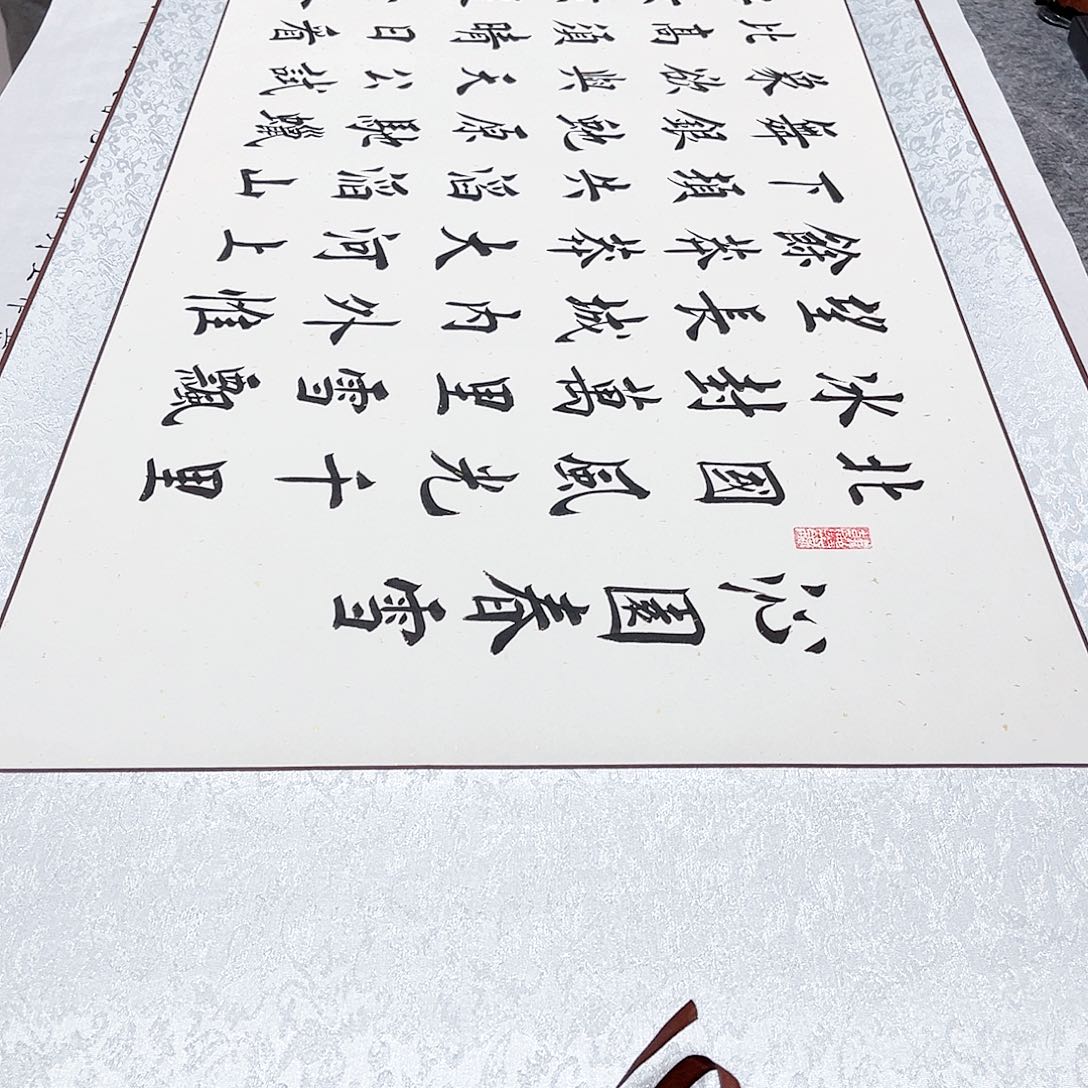 沁園春雪
北國風光千里
冰封萬里雪飄
望長城内外惟
餘莽莽大河上
下頓失滔滔山
舞銀虵原馳蠟
象欲與天公試
比高須晴日看